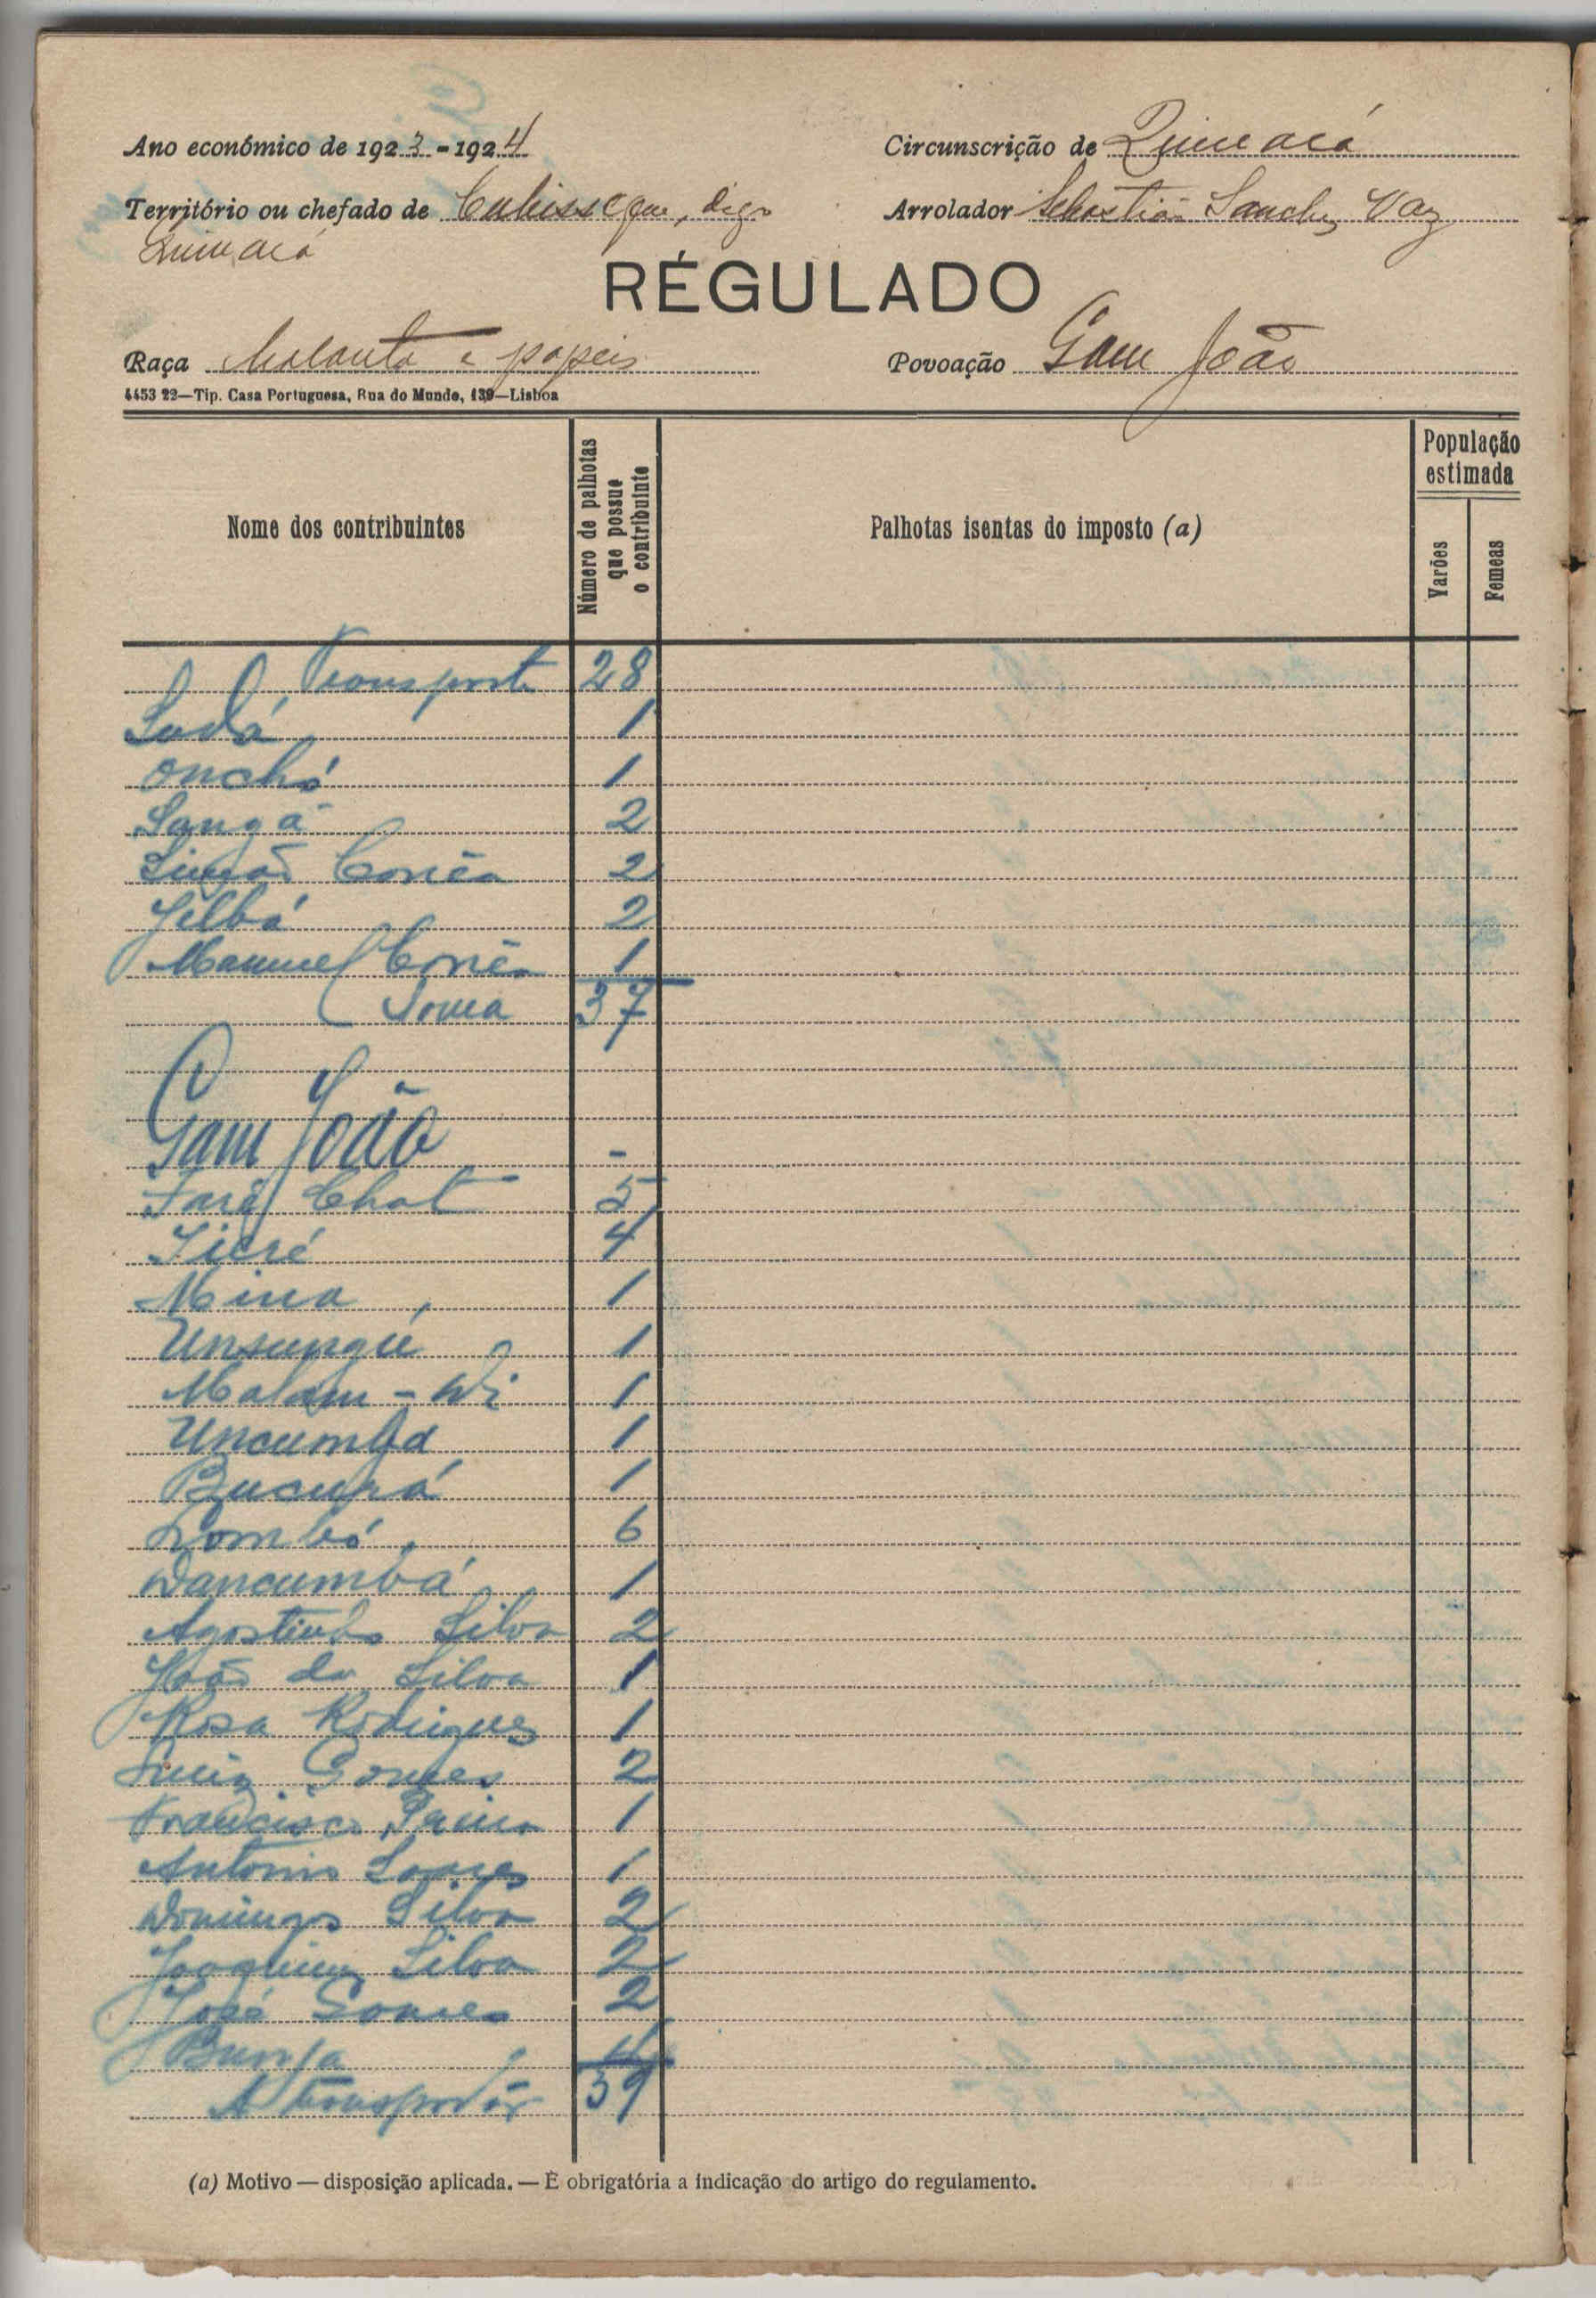 Ano económico de 1923-1924
Circunscrição de Quinará
Território ou chefado de Cubisseque, digo
Quinará
Arrolador Sebastião Sanches Vaz
RÉGULADO
Raça Balanta e papeis
Povoação Gam João
4453 22—Tip. Casa Portuguesa, Rua do Mundo, 139—Lisboa
Nome dos contribuintes
Número de palhotas que possue o contribuinte
Palhotas isentas do imposto (a)
População estimada
Varões
Femeas
Transporte 28
1
Onchó 1
Sangá 2
Simão Corrêa 2
2
Manuel Corrêa 1
Soma 37
Gam João -
Chat 5
4
Mina 1
Unsungué 1
Malam-Wi 1
Uncumba 1
1
Lombó 6
Dancumbá 1
Agostinho Silva 2
João da Silva 1
Rosa Rodrigues 1
Luiz Gomes 2
Francisco 1
Antonio Soares 1
Domingos Silva 2
Joaquim Silva 2
José Gomes 2
Bunja 4
A transportar 39
(a) Motivo — disposição aplicada. — É obrigatória a indicação do artigo do regulamento.